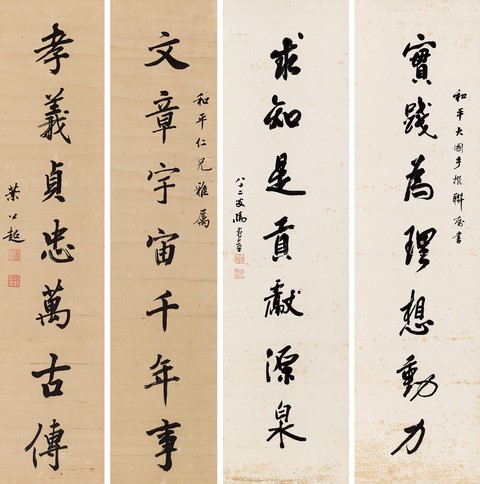 和平大國手撰聯屬書
實踐為理想動力
求知是貢獻源泉
八十二叟馮
和平仁兄雅屬
文章宇宙千年事
孝義貞忠萬古傳
葉公超